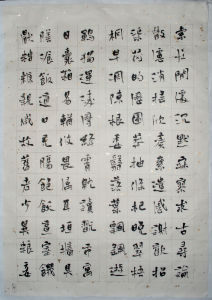 索居閒處沉默寂寥求古尋論
散慮逍遙欣奏累遣慼謝歡招
渠荷的歷園莽抽條杷晚翠梧
桐早凋陳根委翳落葉飄颻遊
鵾獨運凌摩絳霄耽讀翫市寓
目囊箱易輶攸畏屬耳垣牆具
膳飡飯適口充腸飽飫烹宰飢
厭糟糠親戚故舊老少異糧妾